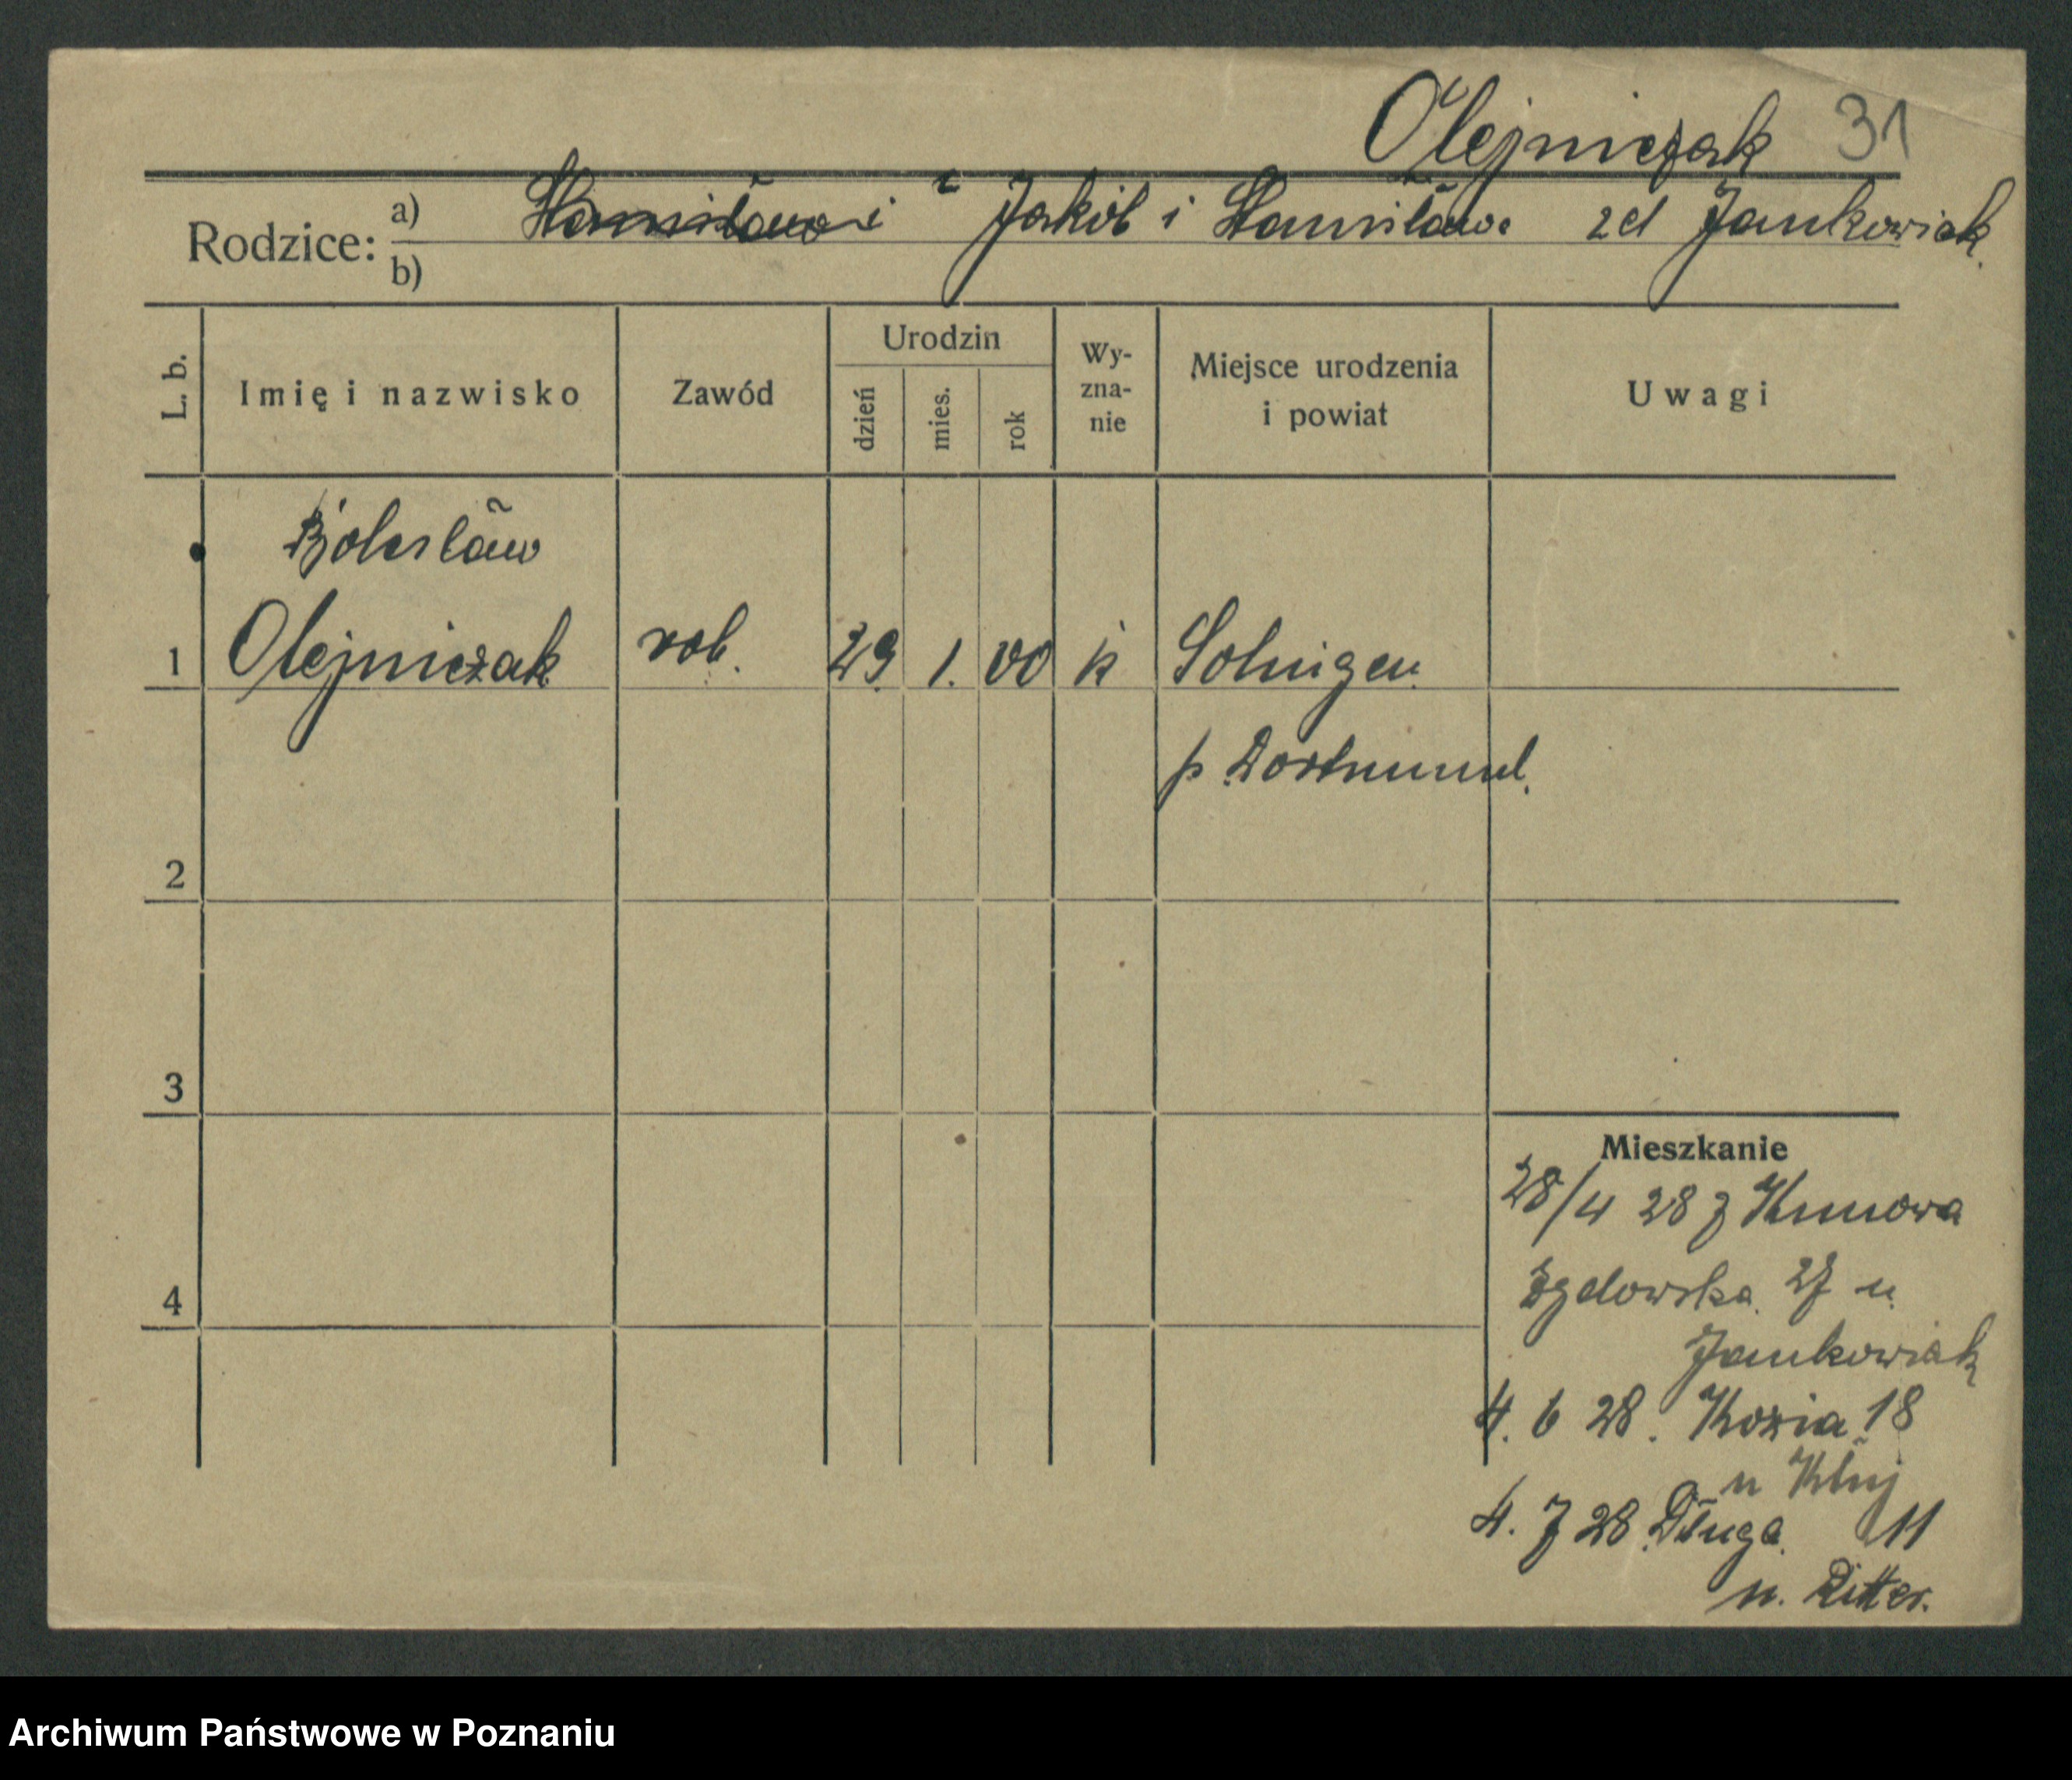 Olejniczak 31
Rodzice: a) Stanisława i Jakób i Stanisława zd Jankowiak
b)
L. b.
Imię i nazwisko
Zawód
Urodzin
dzień
mies.
rok
Wy-
zna-
nie
Miejsce urodzenia
i powiat
Uwagi
Bolesław
1 Olejniczak rob. 29. 1. 00 k Solnigen
p Dortmund.
2
3
4
Mieszkanie
28/4 28 z
27 u
Jankowiak
4. 6 28. Kozia 18
u
4. 7 28 Długa 11
u. Ritter.
Archiwum Państwowe w Poznaniu